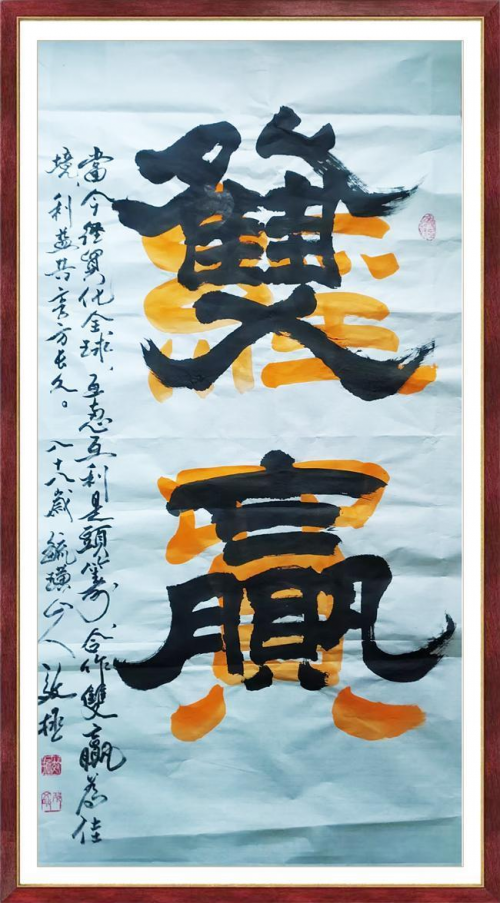 雙贏
經貿
當今經貿化全球，互惠互利是頭籌，合作雙贏為佳
境，利益共享方長久。八十八歲 毓璜山人